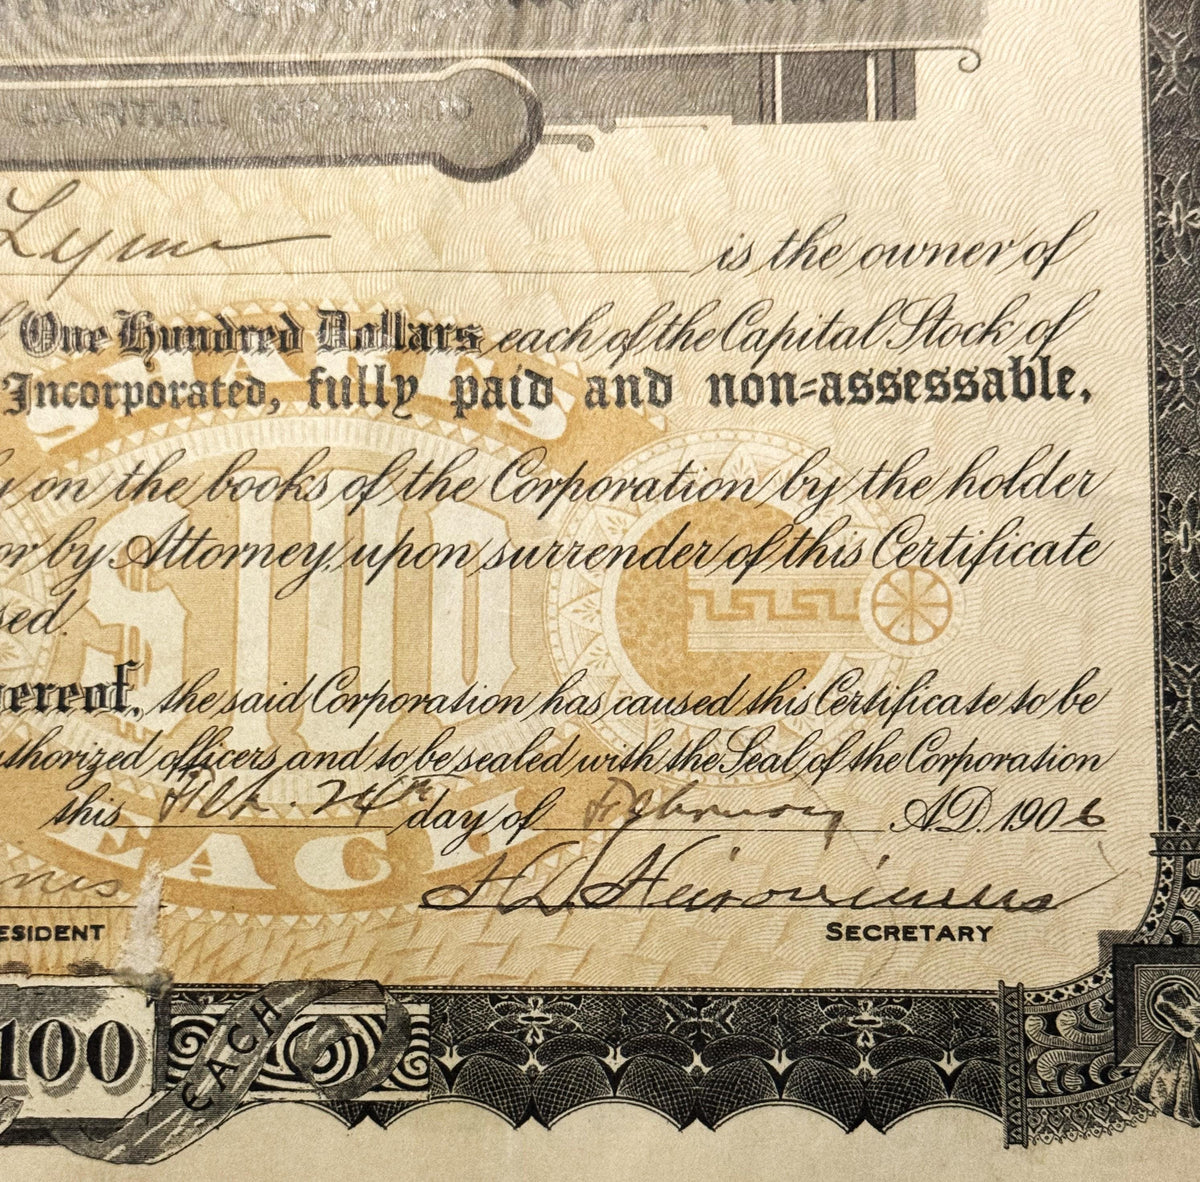 CAPITAL,
Lynn is the owner of
One Hundred Dollars each of the Capital Stock of
Incorporated, fully paid and non-assessable,
SHARES
on the books of the Corporation by the holder
$100
or by Attorney, upon surrender of this Certificate
sed.
hereof, the said Corporation has caused this Certificate to be
uthorized officers and to be sealed with the Seal of the Corporation
this 24th day of February A.D. 1906
EACH
H Hieronimus
ESIDENT SECRETARY
100 EACH